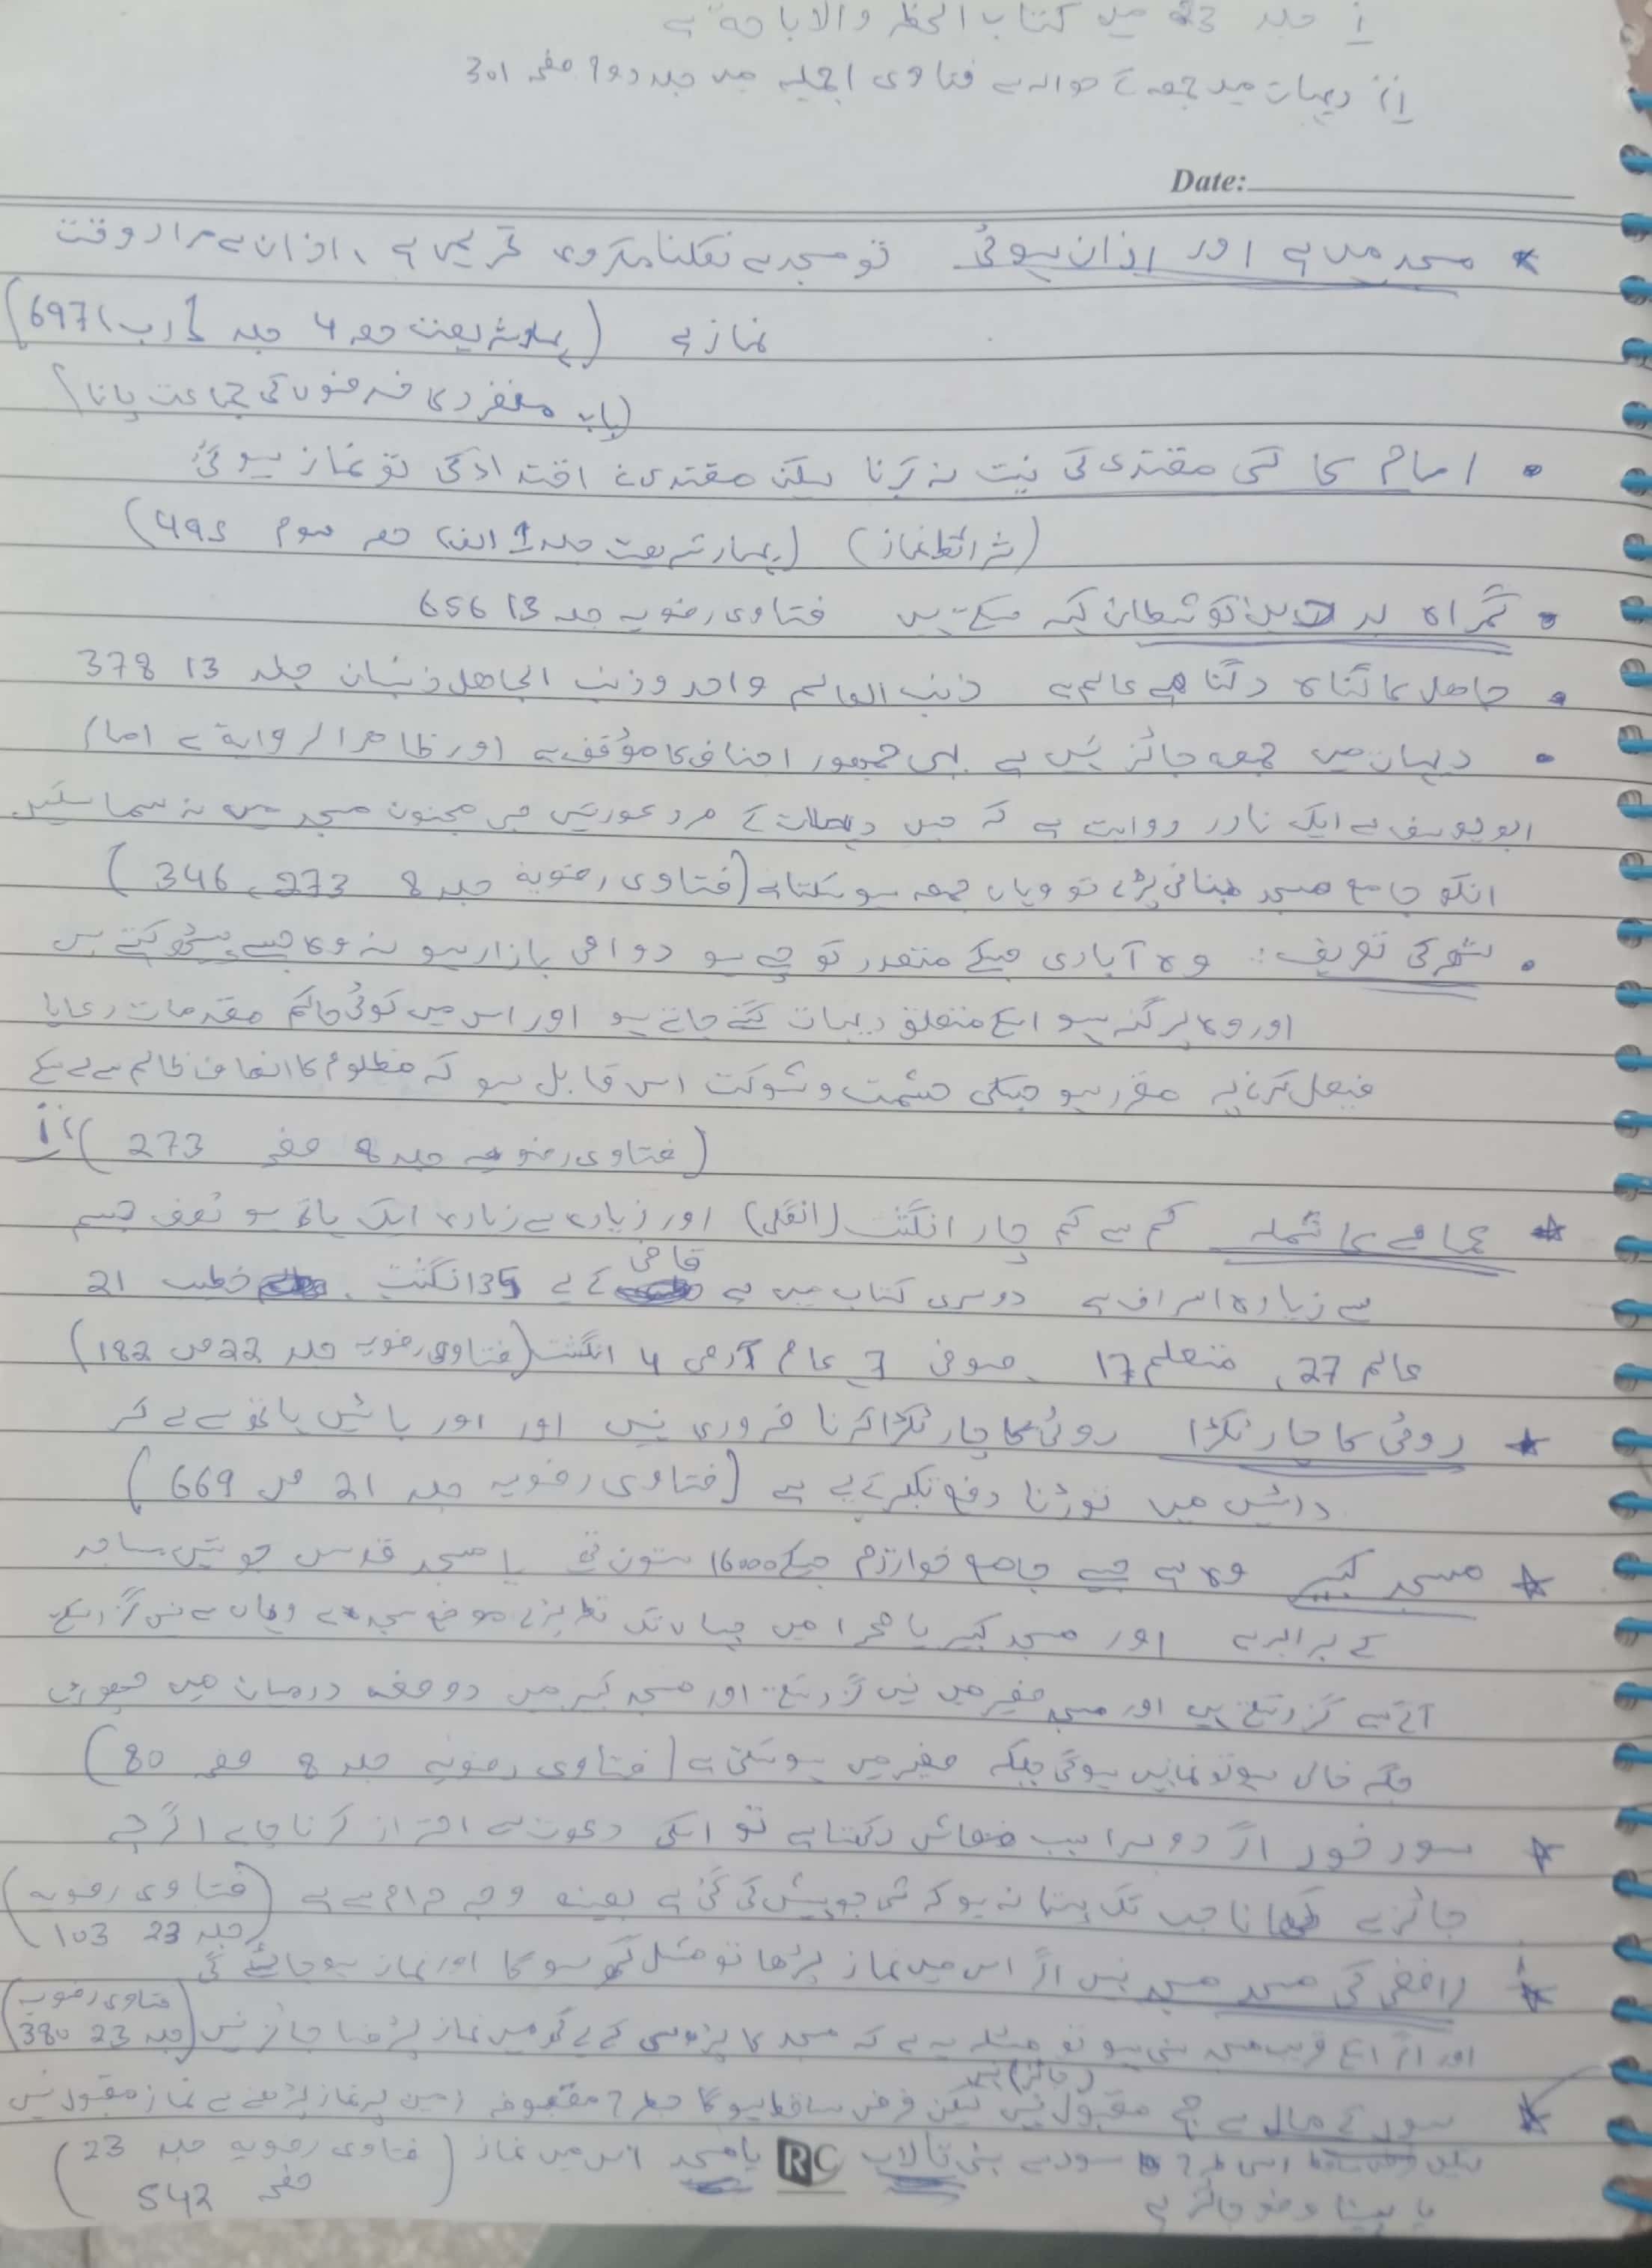 i جلد 23 میں کتاب الحظر والاباحۃ ہے
ii دیہات میں جمعہ کے حوالہ سے فتاوی اجملیہ میں جلد دوم صفحہ 301
Date:
* مسجد میں ہے اور اذان ہوئی تو مسجد سے نکلنا مکروہ تحریمی ہے، اذان سے مراد وقت
نماز ہے (بہار شریعت حصہ 4 جلد 1 (ب) 697)
(باب منفرد کا فرضوں کی جماعت پانا)
• امام کا کسی مقتدی کی نیت نہ کرنا لیکن مقتدی نے اقتداء کی تو نماز ہو گئی
(شرائط نماز) (بہار شریعت جلد 1 (الف) حصہ سوم 495)
• گمراہ بد دین کو شیطان کہہ سکتے ہیں فتاوی رضویہ جلد 13 656
• جاھل کا گناہ دگنا ہے عالم سے ذنب العالم واحد وذنب الجاھل ذنبان جلد 13 378
• دیہات میں جمعہ جائز نہیں ہے یہی جمہور احناف کا مؤقف ہے اور ظاہر الروایۃ ہے امام
ابو یوسف سے ایک نادر روایت ہے کہ جس دیہات کے مرد عورتیں مجنون مسجد میں نہ سما سکیں
انکو جامع مسجد بنانی پڑے تو وہاں جمعہ ہو سکتا ہے (فتاوی رضویہ جلد 8 273، 346)
• شہر کی تعریف: وہ آبادی جسکے متعدد کوچے ہو دوامی بازار ہو نہ وہ جسے پیٹھ کہتے ہیں
اور وہ پرگنہ ہو اسکے متعلق دیہات گنے جاتے ہو اور اس میں کوئی حاکم مقدمات رعایا
فیصل کرنے پر مقرر ہو جسکی حشمت و شوکت اس قابل ہو کہ مظلوم کا انصاف ظالم سے لے سکے
(فتاوی رضویہ جلد 8 صفحہ 273) ii
* عمامے کا شملہ کم سے کم چار انگشت (انگلی) اور زیادہ سے زیادہ ایک ہاتھ ہو نصف جسم
سے زیادہ اسراف ہے دوسری کتاب میں ہے قاضی کے لے 35 انگشت، خطیب 21
عالم 27، متعلم 17، صوفی 7، عام آدمی 4 انگشت (فتاوی رضویہ جلد 22 ص 182)
* روٹی کا چار ٹکڑا روٹی کا چار ٹکڑا کرنا ضروری نہیں اور اور بائیں ہاتھ سے لے کر
دائیں میں توڑنا دفع تکبر کے لے ہے (فتاوی رضویہ جلد 21 ص 669)
* مسجد کبیر وہ ہے جیسے جامع خوارزم جسکے 16000 ستون تھے یا مسجد قدس جو تین مساجد
کے برابر ہے اور مسجد کبیر یا صحرا میں جہاں تک نظر پڑے موضع سجدہ سے وہاں سے نہیں گزر سکتے
آگے سے گزر سکتے ہیں اور مسجد صغیر میں نہیں گزر سکتے اور مسجد کبیر میں دو صف درمیان میں چھوڑی
جگہ خالی ہو تو نماز نہیں ہوگی جبکہ صغیر میں ہو سکتی ہے (فتاوی رضویہ جلد 8 صفحہ 80)
* سود خور اگر دوسرا سبب معاش رکھتا ہے تو اسکی دعوت سے احتراز کرنا چاہے اگرچے
جائز ہے کھانا جب تک پتا نہ ہو کہ شی جو پیش کی گئی ہے بعینہ وجہ حرام سے ہے (فتاوی رضویہ
جلد 23 103)
* رافضی کی مسجد مسجد نہیں اگر اس میں نماز پڑھا تو مثل گھر ہو گا اور نماز ہو جائے گی
اور اگر اسکے قریب مسجد سنی ہو تو مسئلہ یہ ہے کہ مسجد کا پڑوسی کے لے گھر میں نماز پڑھنا جائز نہیں (فتاوی رضویہ جلد 23 380)
* سود کے مال سے حج مقبول نہیں (جائز) لیکن فرض ساقط ہو گا جسطرح مغصوبہ زمین پر نماز پڑھنے سے نماز مقبول نہیں
اسی طرح سود سے بنی تالاب یا مسجد اس میں نماز (فتاوی رضویہ جلد 23
یا پینا وضو جائز ہے صفحہ 542)
RC